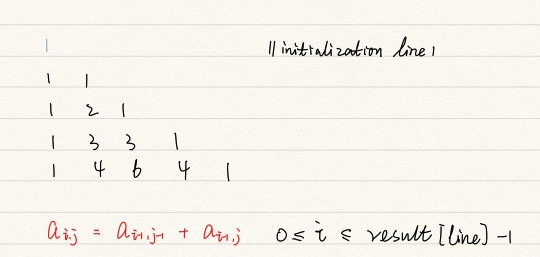 1 // initialization line 1
1 1
1 2 1
1 3 3 1
1 4 6 4 1
a_{i,j} = a_{i-1,j-1} + a_{i-1,j} 0 ≤ i ≤ result[line] - 1